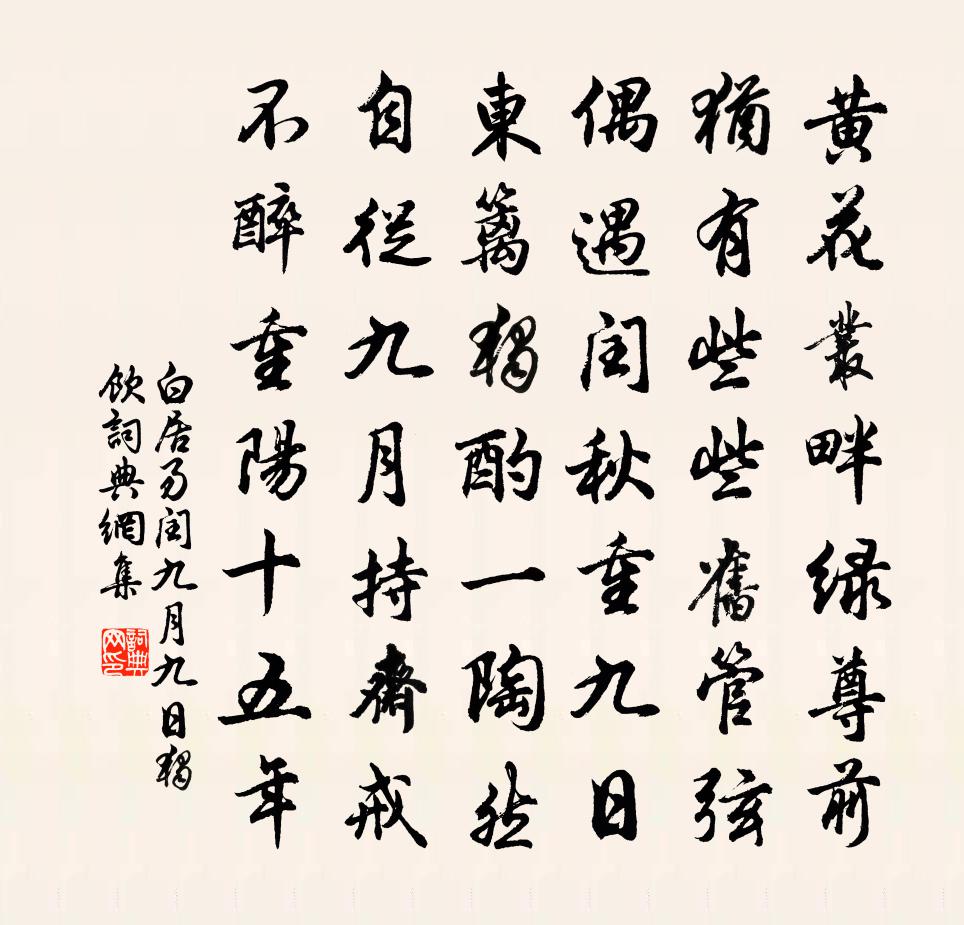 黃花叢畔綠尊前
猶有些些舊管弦
偶遇閏秋重九日
東籬獨酌一陶然
自從九月持齋戒
不醉重陽十五年
白居易閏九月九日獨
飲詞典網集
詞典
网印